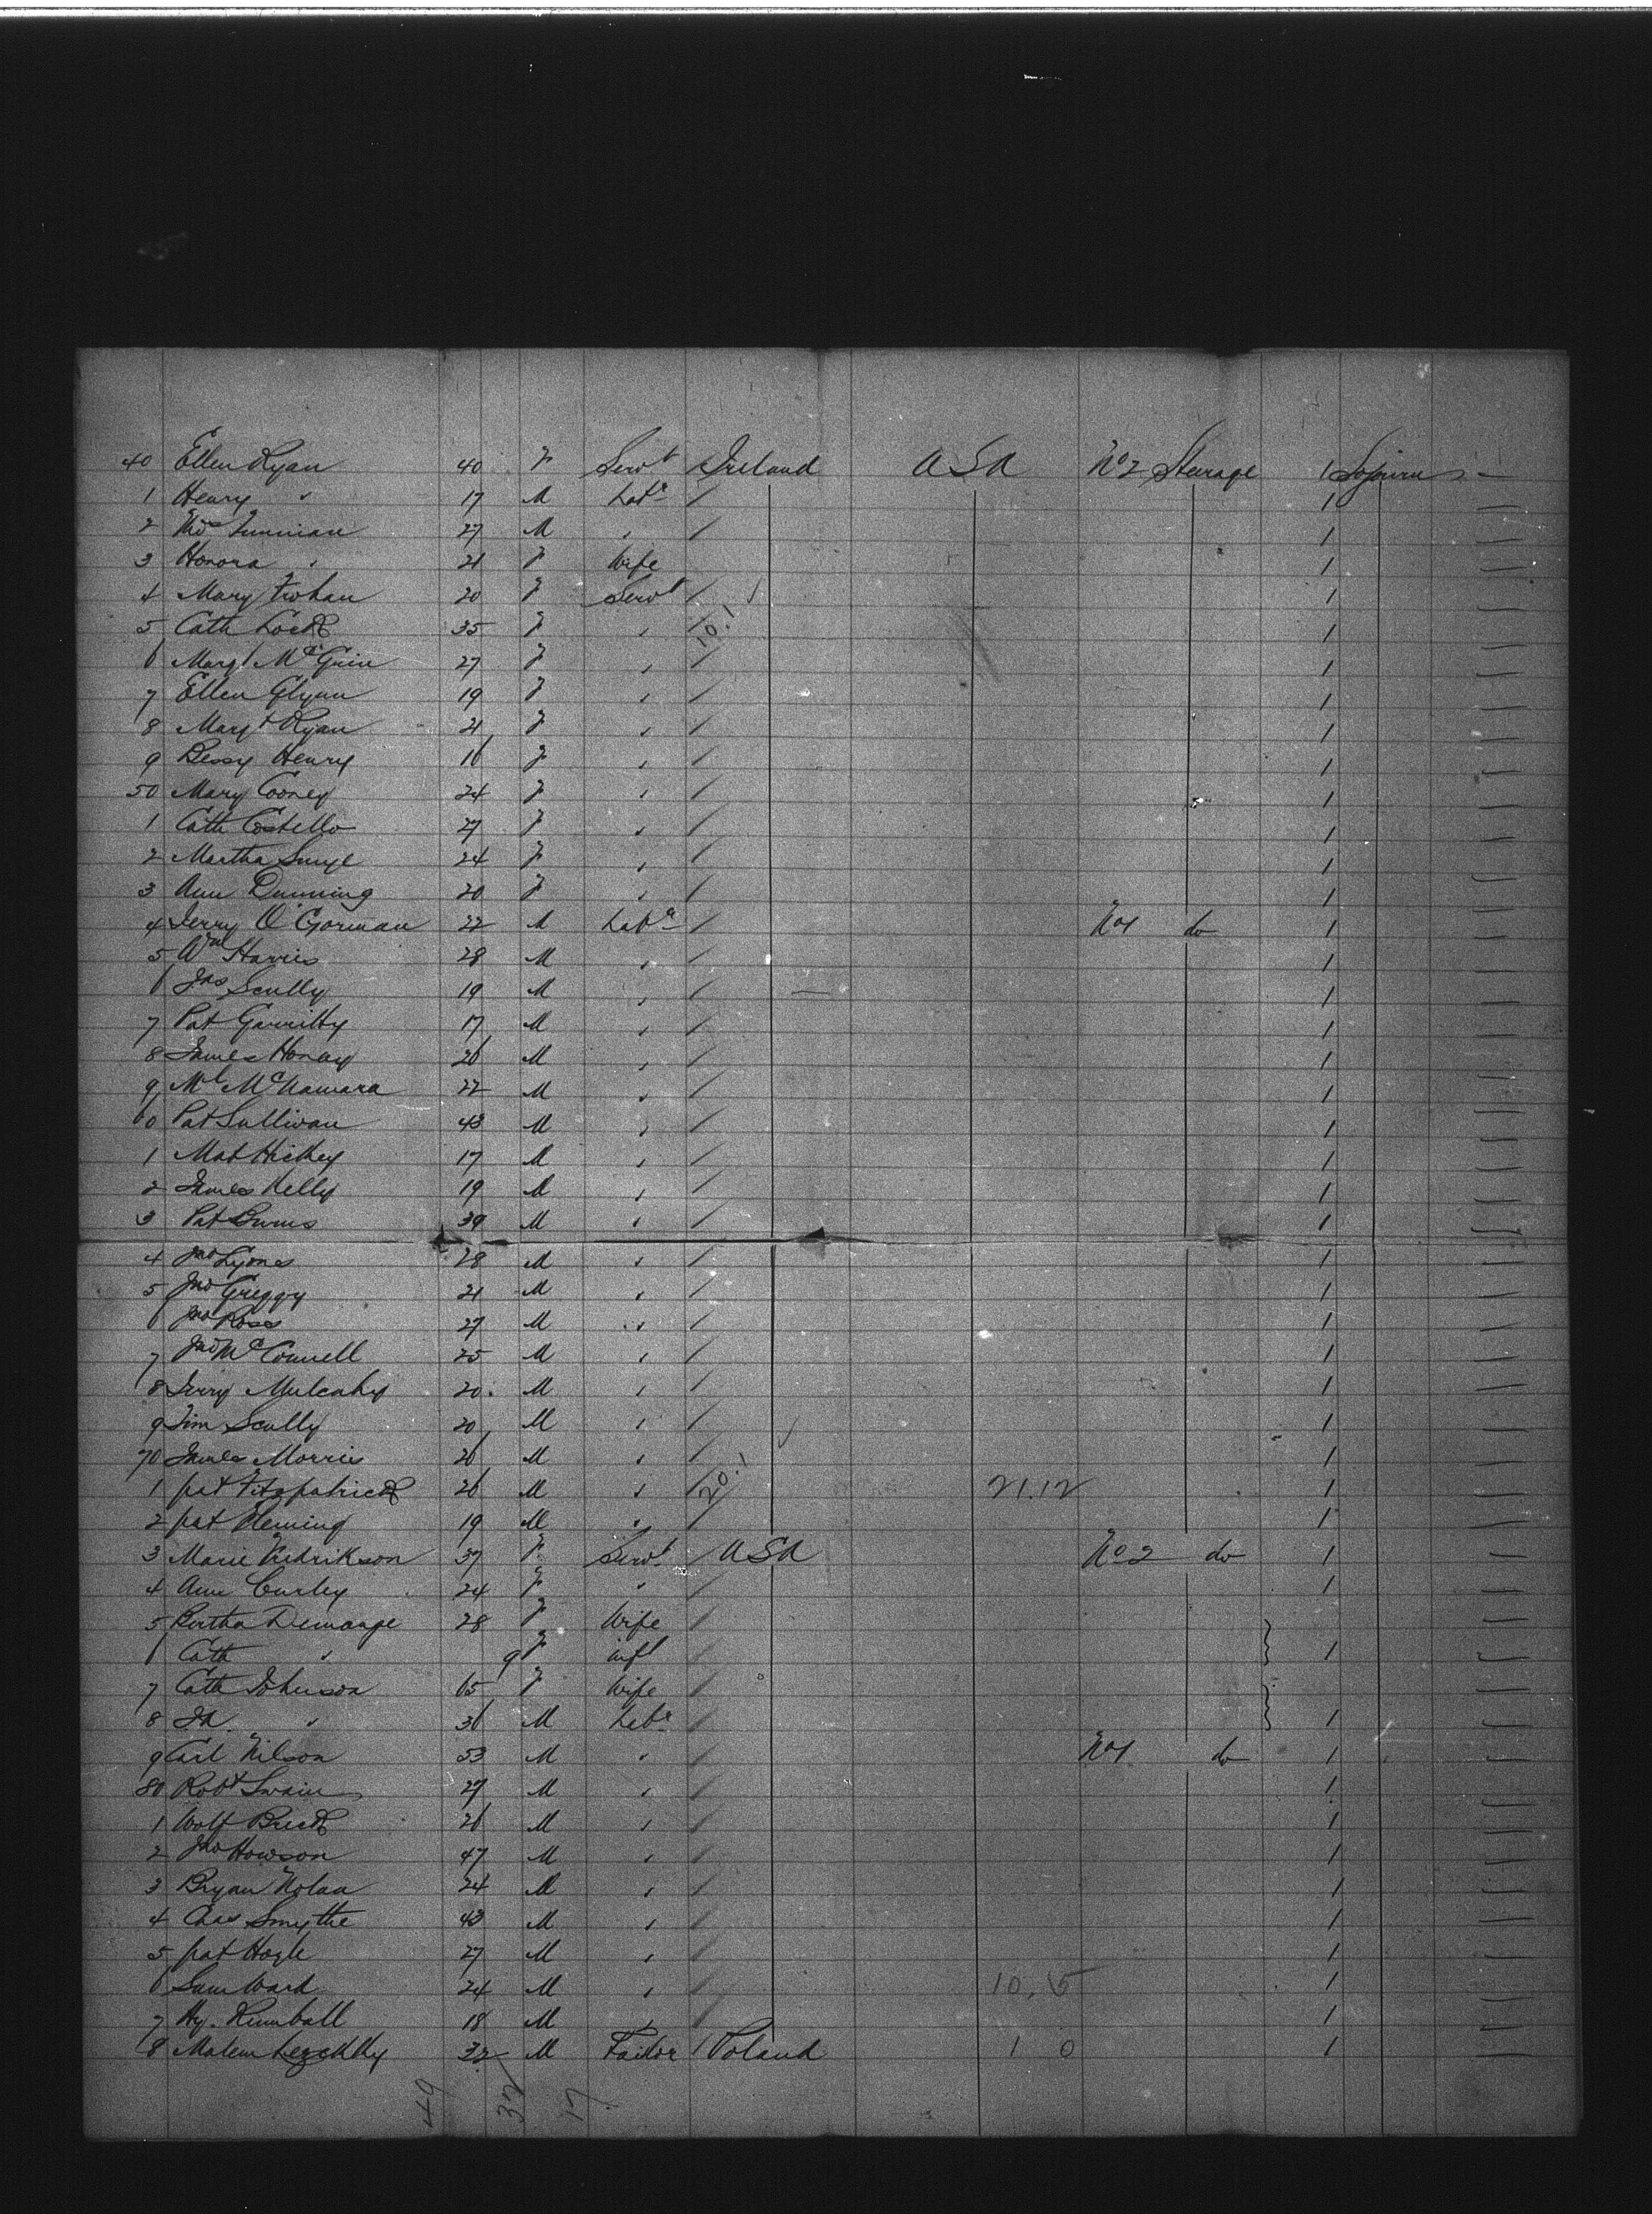 40 Ellen Ryan 40 F Servt Ireland U S A No 2 Steerage 1 Sojourn
1 Henry " 17 M Labr / 1
2 Thos 27 M " / 1
3 Honora " 21 F Wife 1
4 Mary 20 F Servt / 1
5 Cath Lock 35 F " / 10.1 1
6 Margt McGuin 27 F " / 1
7 Ellen Glynn 19 F " / 1
8 Margt Ryan 21 F " / 1
9 Bessy Henry 16 F " / 1
50 Mary Cooney 24 F " / 1
1 Cath Costello 27 F " / 1
2 Martha 24 F " / 1
3 Ann Dunning 20 F " / 1
4 Jerry O'Gorman 22 M Labr / No 1 do 1
5 Wm Harris 28 M " / 1
6 Jas Scully 19 M " / 1
7 Pat Garritty 17 M " / 1
8 James Honay 26 M " / 1
9 Ml McNamara 22 M " / 1
60 Pat Sullivan 43 M " / 1
1 Mat Hickey 17 M " / 1
2 James Kelly 19 M " / 1
3 Pat Burns 39 M " / 1
4 Jno Lyons 28 M " / 1
5 Jno Greggy 21 M " / 1
6 Jno Ross 27 M " / 1
7 Jno McConnell 25 M " / 1
8 Jerry Mulcahy 20 M " / 1
9 Tim Scully 20 M " / 1
70 James Morris 26 M " / 1
1 pat Fitzpatrick 26 M " / 20.1 21.12 1
2 pat Fleming 19 M " / 1
3 Marie Fredrikson 37 F Servt / U S A No 2 do 1
4 Ann Curley 24 F " / 1
5 Bertha Demange 28 F Wife /
6 Cath " 9 F inft / 1
7 Cath Johnson 65 F Wife /
8 " 36 M Labr / 1
9 Carl Nilson 53 M " / No 1 do 1
80 Robt Swain 27 M " / 1
1 Wolf Brick 26 M " / 1
2 Jno Howson 47 M " / 1
3 Bryan Nolan 24 M " / 1
4 Chas Smythe 43 M " / 1
5 pat Hoyle 27 M " / 1
6 Sam Ward 24 M " / 10.15 1
7 Hy. Kimball 18 M " / 1
8 32 M Tailor / Poland 1 0 1
49 32 17